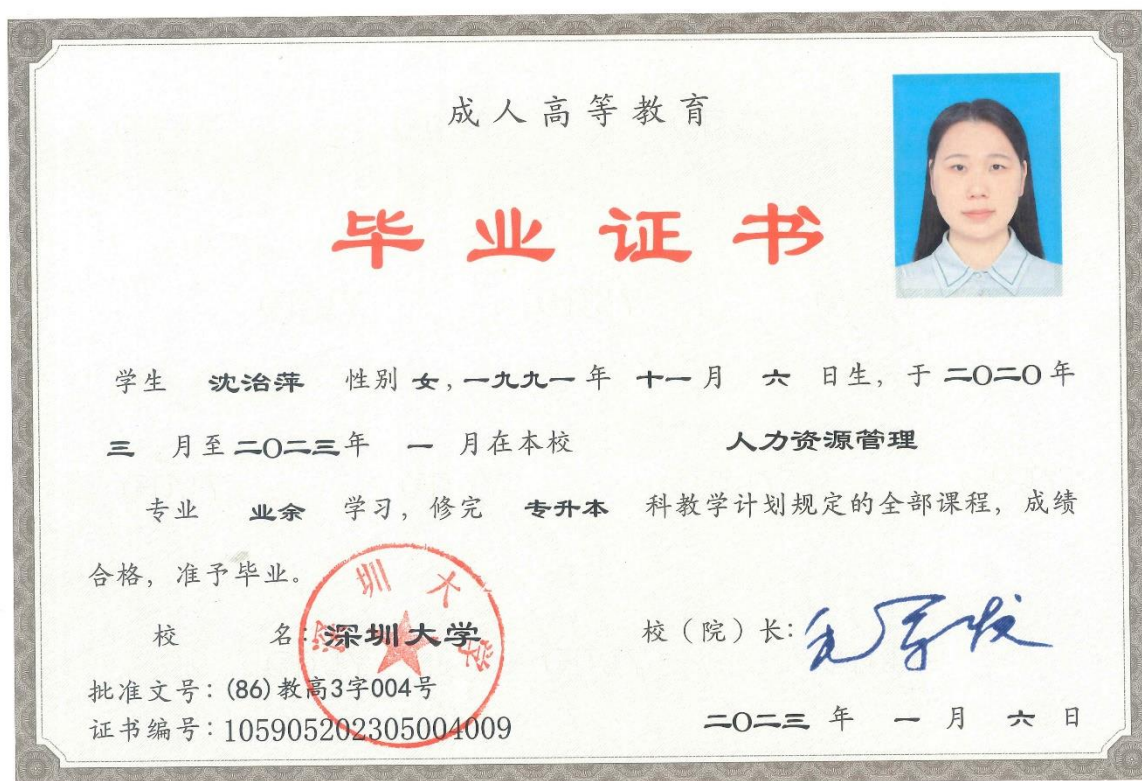 成人高等教育
毕业证书
学生 沈治萍 性别 女，一九九一 年 十一 月 六 日生，于 二〇二〇 年
三 月至 二〇二三 年 一 月在本校 人力资源管理
专业 业余 学习，修完 专升本 科教学计划规定的全部课程，成绩
合格，准予毕业。
深圳大学
校 名：深圳大学
校（院）长：毛军发
批准文号：(86)教高3字004号
证书编号：105905202305004009
二〇二三 年 一 月 六 日